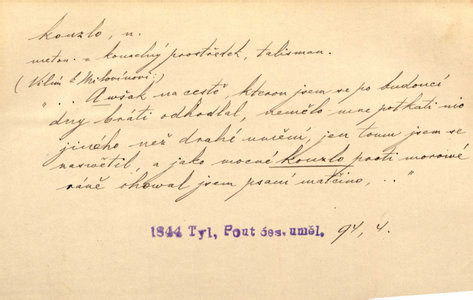 kouzlo, n.
meton. = kouzelný prostředek, talisman.
(Vilém S Mitovínovi:)
"... Awšak na cestě, kterou jsem se po budoucí
dny bráti odhodlal, nemělo mne potkati nic
jiného než drahé umění, jen tomu jsem se
zaswětil, a jako mocné kouzlo proti morowé
ráně chowal jsem psaní matčino, ..."
1844 Tyl, Pout čes. uměl. 94, 4.